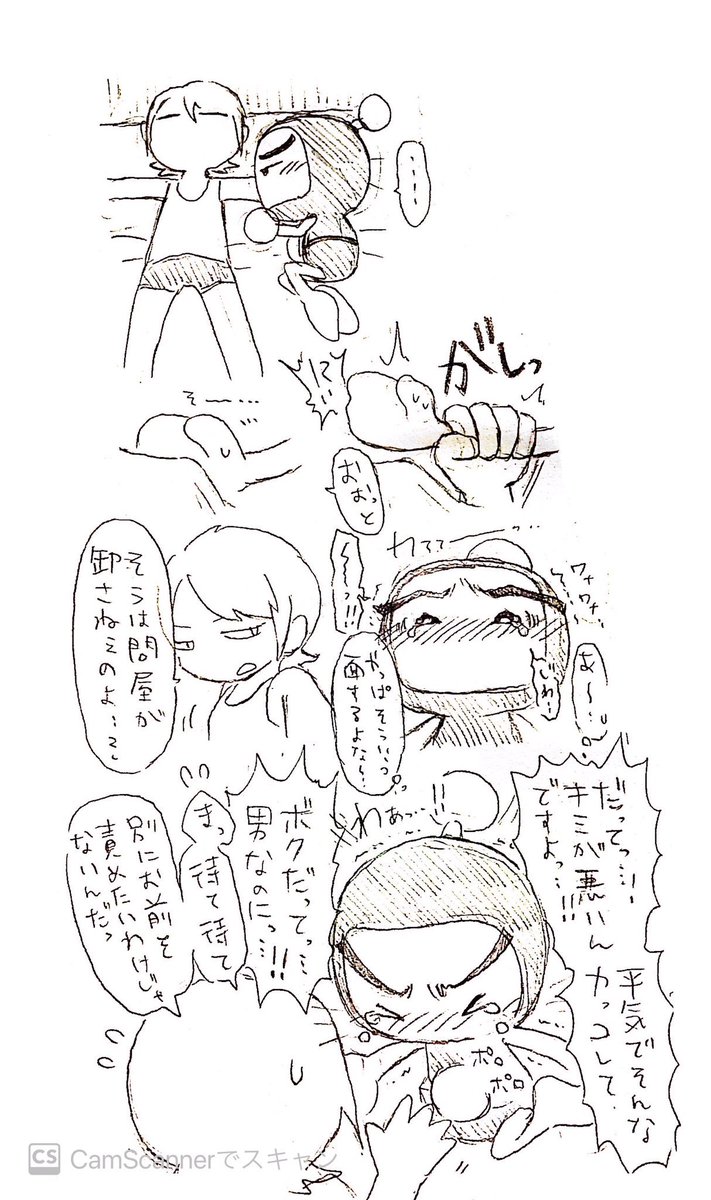 ……
がしっ
そ……
おおっと
わああ……っ
ワナワナ
あ〜…。
じわ…
やっぱそういっ
面するよなら〜
そうは問屋が
卸さねえのよ…
だってっ…!
キミが悪いん
ですよっ…!!
平気でそんな
カッコして、
わあっ…!!
ボクだってっ…
男なのにっ…!!
まっ待て待て
別にお前を
責めたいわけじゃ
ないんだっ
ポロ
ポロ
CS CamScannerでスキャン